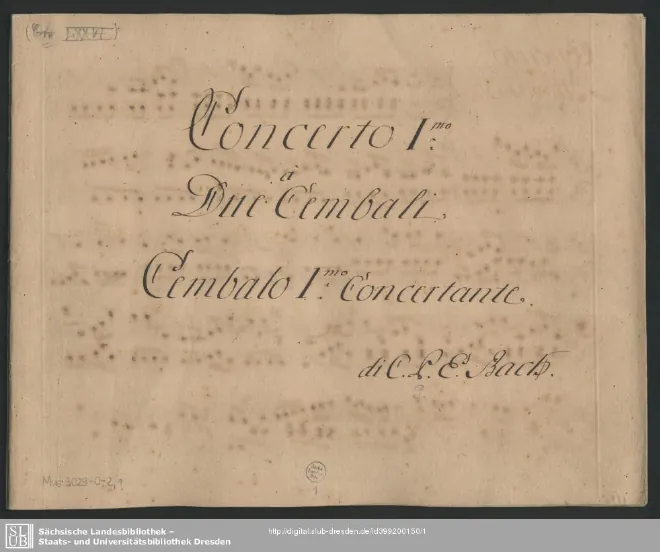 LXXVI
Concerto I.mo
à
Due Cembali.
Cembalo I.mo Concertante.
di C. P. E. Bach.
Mus. 3029-O-2,1
1
SLUB
Sächsische Landesbibliothek –
Staats- und Universitätsbibliothek Dresden
http://digital.slub-dresden.de/id399200150/1